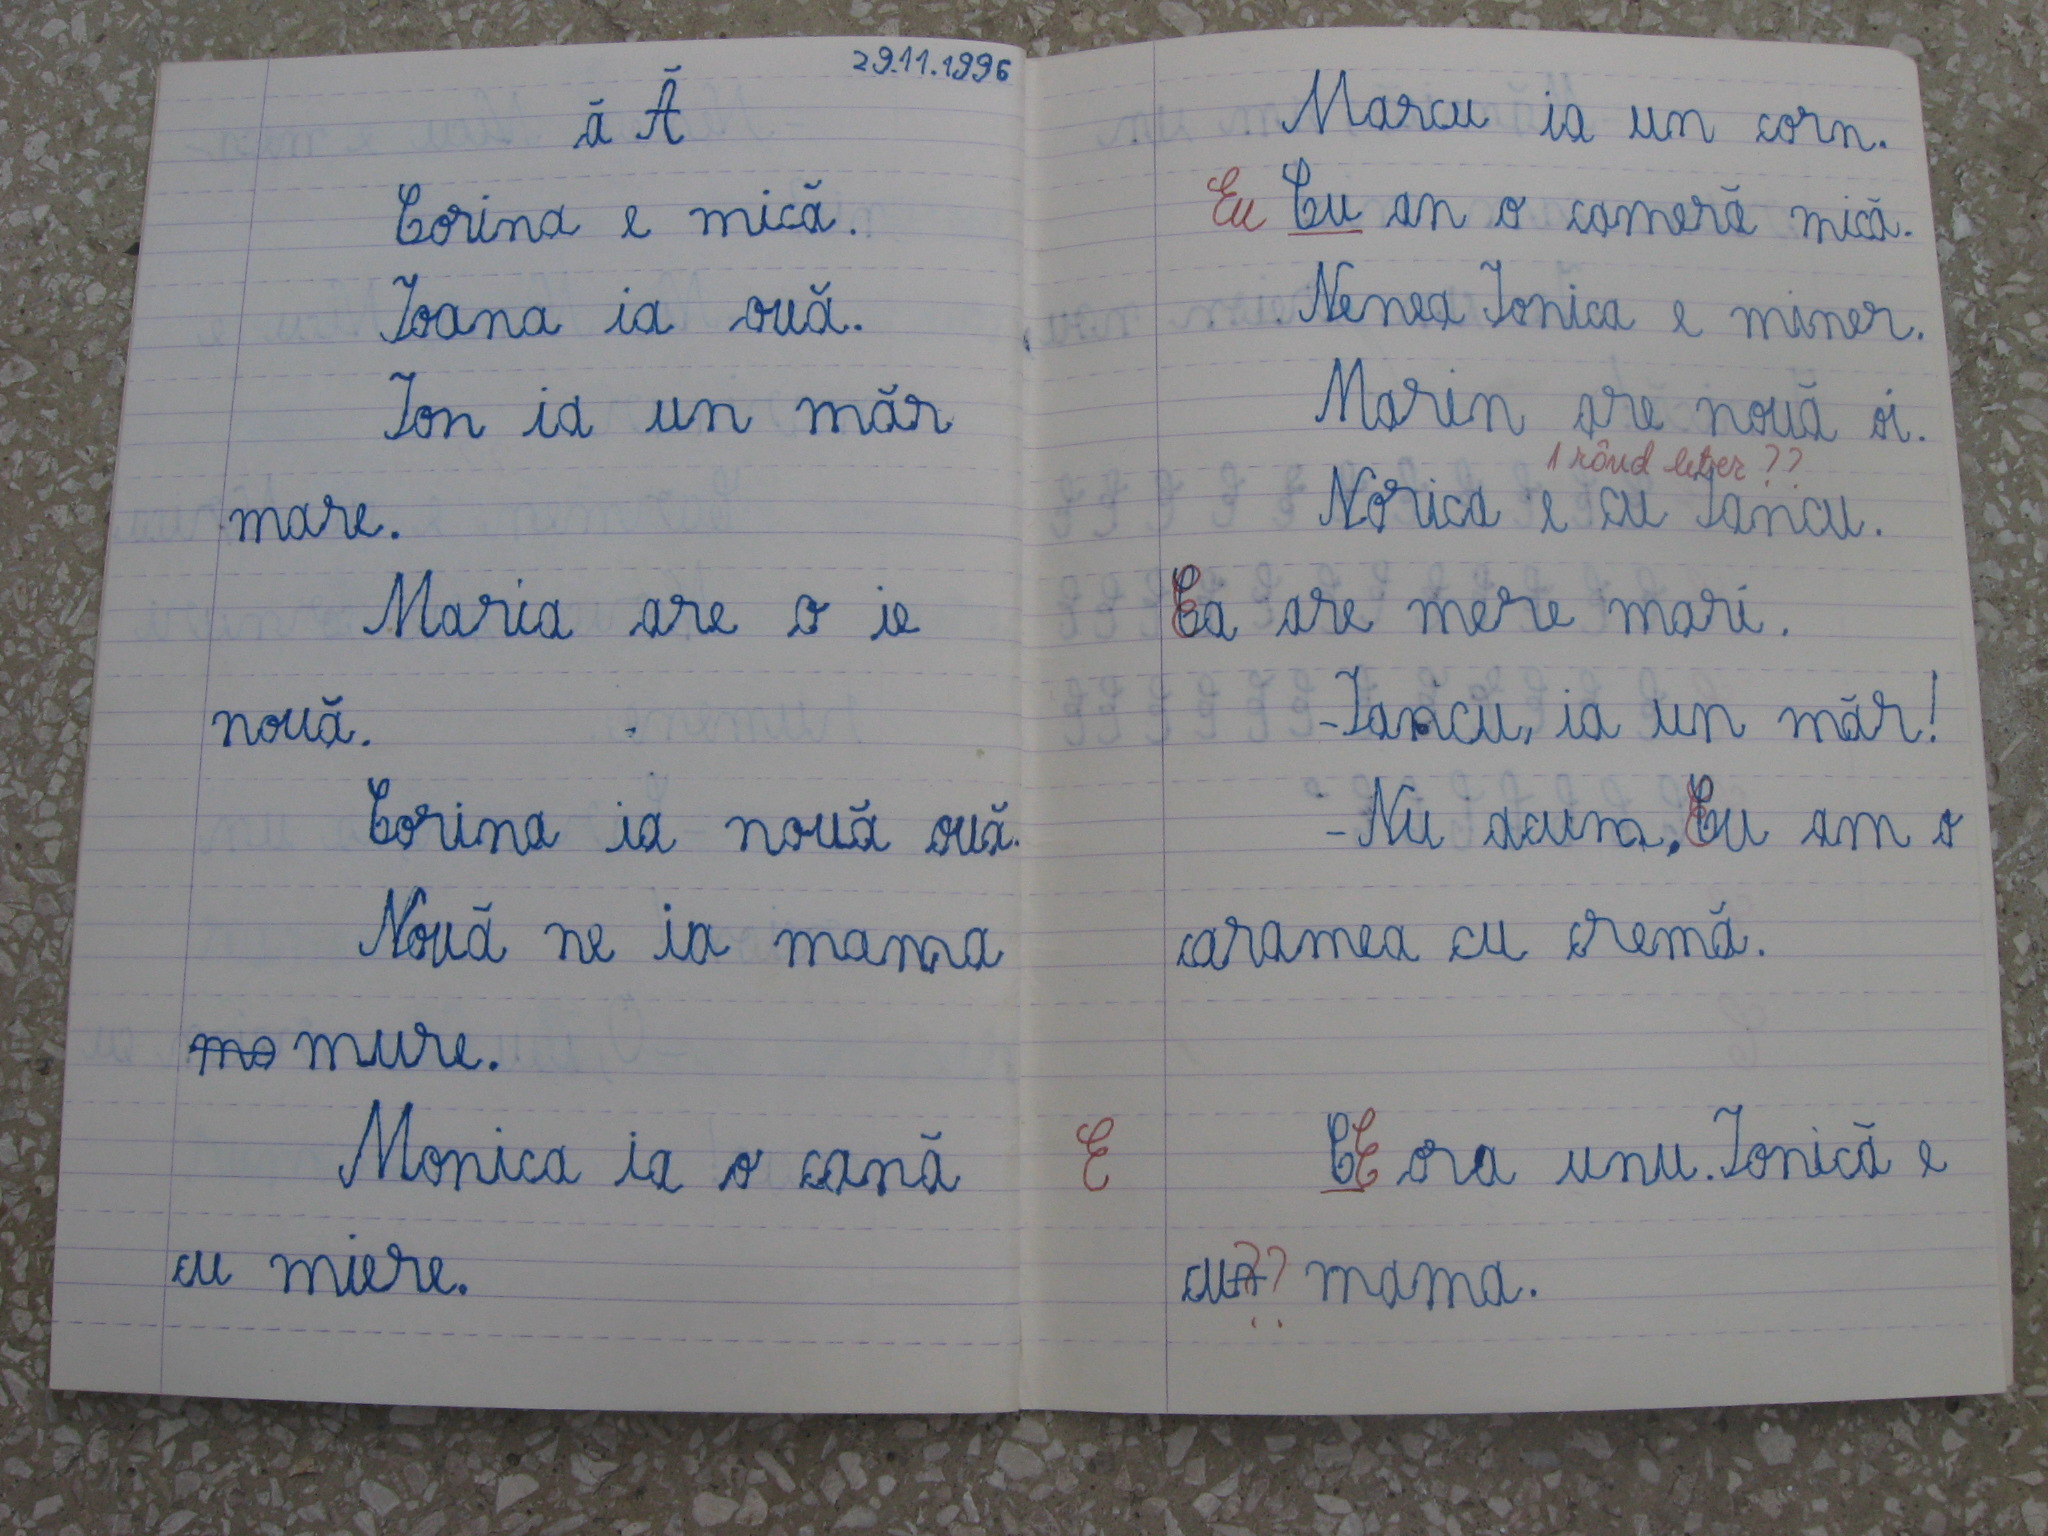 29.11.1996
ă Ă
Corina e mică.
Ioana ia ouă.
Ion ia un măr
mare.
Maria are o ie
nouă.
Corina ia nouă ouă.
Nouă ne ia mama
ma mure.
Monica ia o cană
cu miere.
Marcu ia un corn.
Eu Cu an o cameră mică.
Nenea Ionica e miner.
Marin are nouă oi.
1 rând
Norica e cu Iancu.
Ea are mere mari.
-Iancu, ia un măr!
-Nu acuma, Eu am o
caramea cu cremă.
E C E ora unu. Ionică e
cu ?? mama.